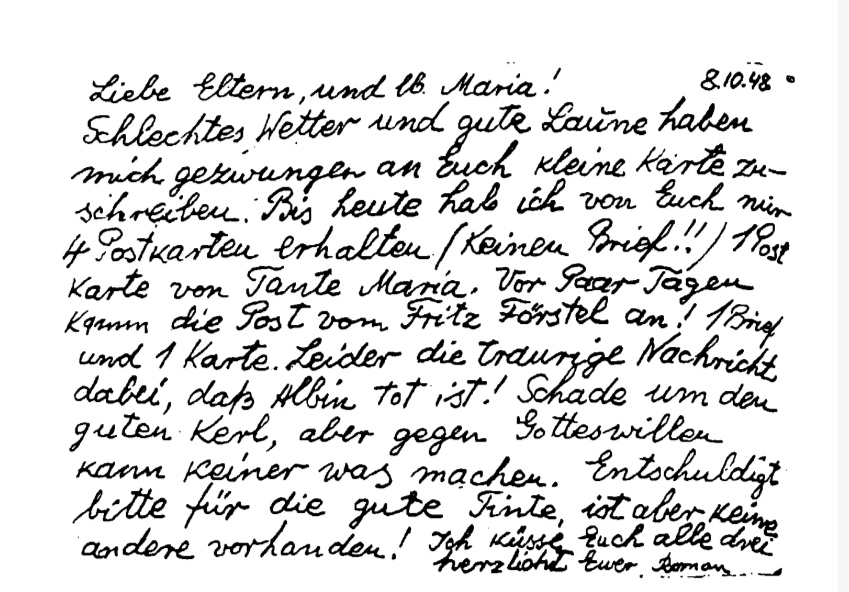 8.10.48
Liebe Eltern, und lb. Maria!
Schlechtes Wetter und gute Laune haben
mich gezwungen an Euch kleine Karte zu-
schreiben. Bis heute hab ich von Euch nur
4 Postkarten erhalten (Keinen Brief!!) 1 Post
Karte von Tante Maria. Vor Paar Tagen
Kamm die Post vom Fritz Förstel an! 1 Brief
und 1 Karte. Leider die traurige Nachricht
dabei, daß Albin tot ist! Schade um den
guten Kerl, aber gegen Gotteswillen
kann keiner was machen. Entschuldigt
bitte für die gute Tinte, ist aber keine
andere vorhanden! Ich küsse Euch alle drei
herzlichst Euer Roman